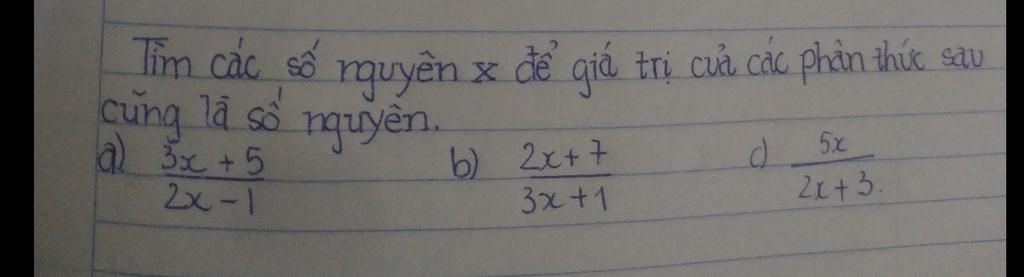 Tìm các số nguyên x để giá trị của các phân thức sau
cũng là số nguyên.
a) \frac{3x + 5}{2x - 1} b) \frac{2x + 7}{3x + 1} c) \frac{5x}{2x + 3}.